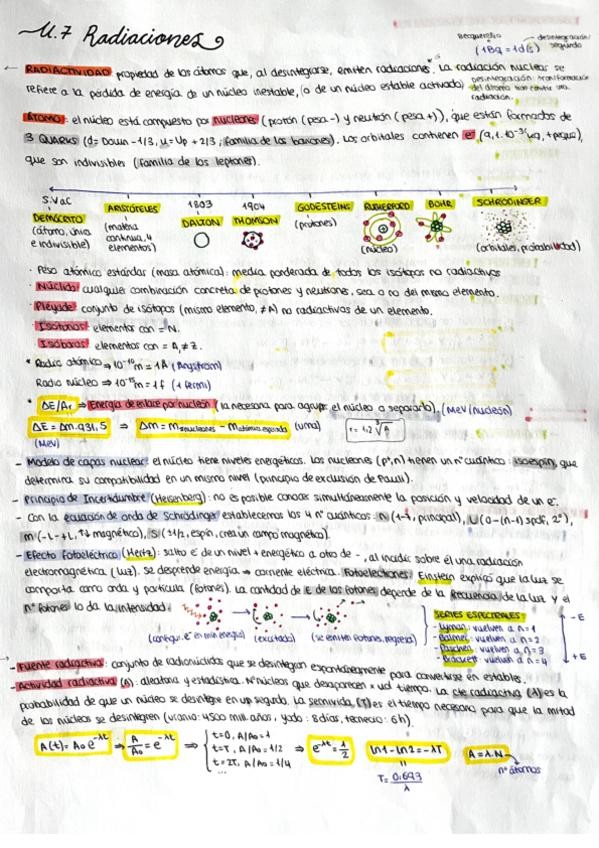 U.7 Radiaciones
Becquerelio
(1Bq = 1d/s)
desintegración/
segundo
RADIACTIVIDAD: propiedad de los átomos que, al desintegrarse, emiten radiaciones. La radiación nuclear se
refiere a la pérdida de energía de un núcleo inestable, (o de un núcleo estable activado)
desintegración: transformación
radiación.
ÁTOMO: el núcleo está compuesto por nucleones (protón (pesa -) y neutrón (pesa +)), que están formados de
3 QUARKS (d= Down -1/3, u= Up +2/3; familia de los bariones). Los orbitales contienen e⁻
que son indivisibles (familia de los leptones).
S.V aC
1803
1904
DEMÓCRITO
ARISTÓTELES
DALTON
THOMSON
GODESTEINS
RUTHERFORD
BOHR
SCHRÖDINGER
(átomo, única
e indivisible)
(materia
continua, 4
elementos)
(protones)
(núcleo)
(orbitales, probabilidad)
· Peso atómico estándar (masa atómica): media ponderada de todos los isótopos no radiactivos
· Núclido: cualquier combinación concreta de protones y neutrones, sea o no del mismo elemento.
· Pléyade: conjunto de isótopos (mismo elemento, ≠A) no radiactivos de un elemento.
· Isótonos: elementos con = N.
· Isóbaros: elementos con = A, ≠ Z.
* Radio atómico ⇒ 10⁻¹⁰m = 1A (Angstrom)
Radio núcleo ⇒ 10⁻¹⁵m = 1f (1 fermi)
* ΔE/Ar ⇒ Energía de enlace por nucleón (la necesaria para agrupar el núcleo o separarlo), (MeV/nucleón)
ΔE = Δm·931,5 ⇒ Δm = m nucleones - m atómica esperada (uma)
r = 1,2 ∛A
(MeV)
- Modelo de capas nuclear: el núcleo tiene niveles energéticos. Los nucleones (p⁺,n) tienen un nº cuántico: isoespín, que
determina su compatibilidad en un mismo nivel (principio de exclusión de Pauli).
- Principio de Incertidumbre (Heisenberg): no es posible conocer simultáneamente la posición y velocidad de un e⁻.
- Con la ecuación de onda de Schrödinger establecemos los 4 nº cuánticos: principal), l (0-(n-1) spdf, 2º),
m (-L - +L, magnético), S (±1/2, espín, crea un campo magnético).
- Efecto fotoeléctrico (Hertz): salto e⁻ de un nivel + energético a otro de -, al incidir sobre él una radiación
electromagnética (luz). Se desprende energía → corriente eléctrica. Fotoelectrones. Einstein explicó que la luz se
comporta como onda y partícula (fotones). La cantidad de E de los fotones depende de la frecuencia de la luz y el
nº fotones lo da la intensidad.
(configu. e⁻ en min energía)
(excitado)
(se emiten fotones, regresa)
SERIES ESPECTRALES
- Lyman: vuelven a n=1
- Balmer: vuelven a n=2
- Paschen: vuelven a n=3
- Brackett: vuelven a n=4
- E
+ E
- Fuente radiactiva: conjunto de radionúclidos que se desintegran espontáneamente para convertirse en estables.
- Actividad radiactiva (A): aleatoria y estadística. Nº núcleos que desaparecen x ud tiempo. La cte radiactiva (λ) es la
probabilidad de que un núcleo se desintegre en un segundo. La semivida (T) es el tiempo necesario para que la mitad
de los núcleos se desintegren (uranio: 4500 mill. años, yodo: 8 días, tecnecio: 6h).
A(t) = A₀ e^-λt ⇒ A/A₀ = e^-λt ⇒
t=0, A/A₀ = 1
t=T, A/A₀ = 1/2
t=2T, A/A₀ = 1/4
...
⇒ e^-λt = 1/2
ln1 - ln2 = -λT
A = λ·N
nº átomos
T = 0,693/λ